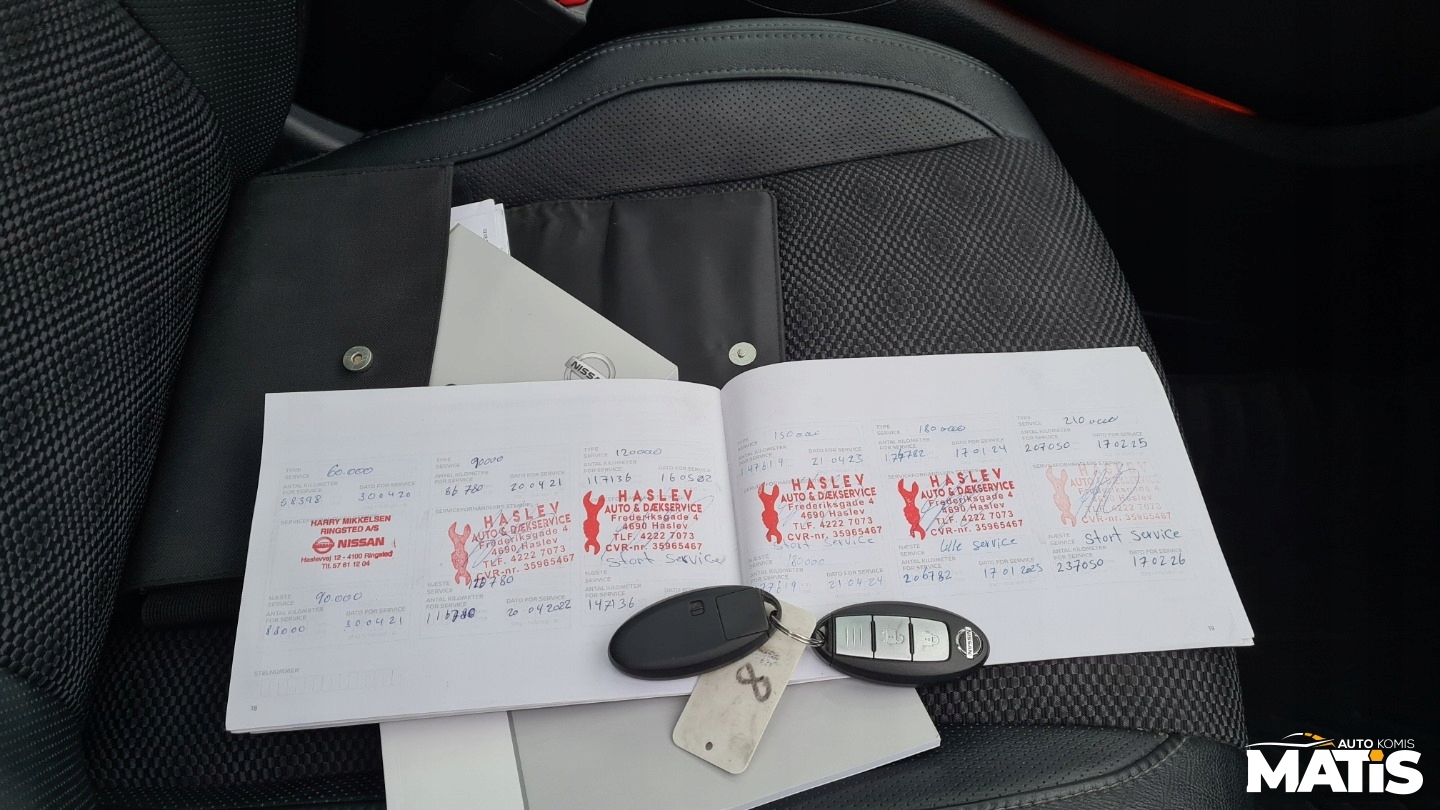 NISSAN
TYPE SERVICE 60.000
ANTAL KILOMETER FØR SERVICE
DATO FOR SERVICE
58398 300420
HARRY MIKKELSEN
RINGSTED A/S
NISSAN
Haslevvej 12 - 4100 Ringsted
Tlf. 57 61 12 04
NÆSTE SERVICE 90.000
ANTAL KILOMETER FØR SERVICE
DATO FOR SERVICE
88000 300421
STELNUMMER
18
TYPE SERVICE 90000
ANTAL KILOMETER FØR SERVICE
DATO FOR SERVICE
86780 200421
HASLEV
AUTO & DÆKSERVICE
Frederiksgade 4
4690 Haslev
TLF. 4222 7073
CVR-nr. 35965467
NÆSTE SERVICE
ANTAL KILOMETER FØR SERVICE
DATO FOR SERVICE
20 04 2022
TYPE SERVICE 120000
ANTAL KILOMETER FØR SERVICE
DATO FOR SERVICE
117136
HASLEV
AUTO & DÆKSERVICE
Frederiksgade 4
4690 Haslev
TLF. 4222 7073
CVR-nr. 35965467
Stort Service
NÆSTE SERVICE
ANTAL KILOMETER FØR SERVICE
147136
TYPE SERVICE 150000
ANTAL KILOMETER FØR SERVICE
DATO FOR SERVICE
147619 210423
HASLEV
AUTO & DÆKSERVICE
Frederiksgade 4
4690 Haslev
TLF. 4222 7073
CVR-nr. 35965467
Stort Service
NÆSTE SERVICE 180000
ANTAL KILOMETER FØR SERVICE
DATO FOR SERVICE
177619 210424
TYPE SERVICE 180000
ANTAL KILOMETER FØR SERVICE
DATO FOR SERVICE
170124
HASLEV
AUTO & DÆKSERVICE
Frederiksgade 4
4690 Haslev
TLF. 4222 7073
CVR-nr. 35965467
Lille service
NÆSTE SERVICE
ANTAL KILOMETER FØR SERVICE
DATO FOR SERVICE
206782 17012025
TYPE SERVICE 210000
ANTAL KILOMETER FØR SERVICE
DATO FOR SERVICE
207050 170225
HASLEV
AUTO & DÆKSERVICE
Frederiksgade 4
4690 Haslev
TLF. 4222 7073
CVR-nr. 35965467
Stort Service
NÆSTE SERVICE
ANTAL KILOMETER FØR SERVICE
DATO FOR SERVICE
237050 170226
19
8
NISSAN
AUTO KOMIS
MATIS